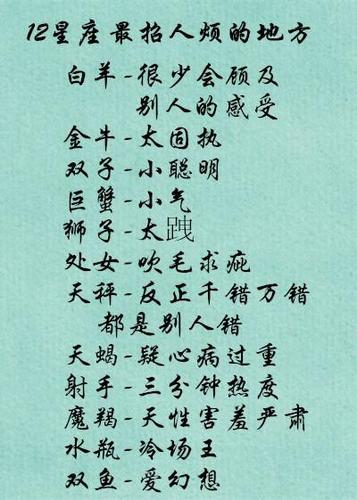 12星座最招人烦的地方
白羊-很少会顾及
别人的感受
金牛-太固执
双子-小聪明
巨蟹-小气
狮子-太跩
处女-吹毛求疵
天秤-反正千错万错
都是别人错
天蝎-疑心病过重
射手-三分钟热度
魔羯-天性害羞严肃
水瓶-冷场王
双鱼-爱幻想